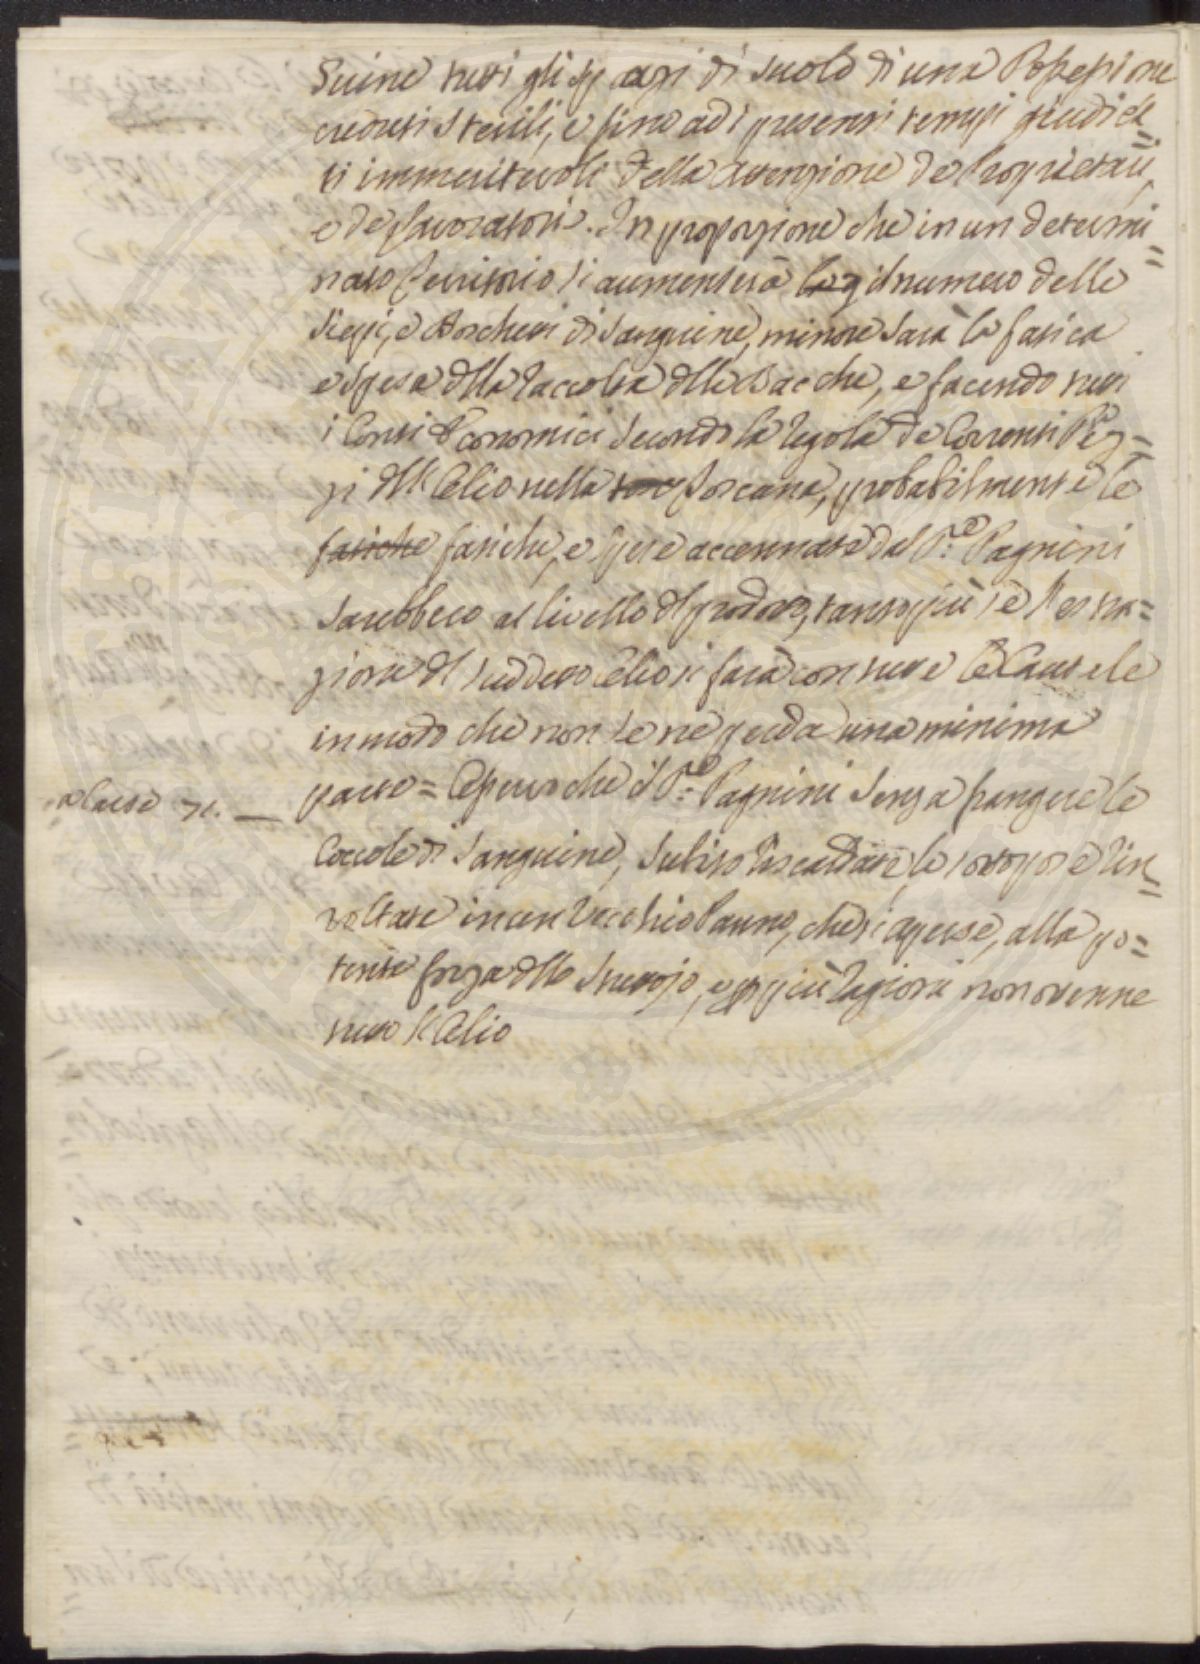 guine tutti gli spazi di suolo di una Possessione
creduti sterili, e fino ad i presenti tempi giudica=
ti immeritevoli della attenzione de Proprietarj,
e de Lavoratori. In proporzione che in un determi=
nato Territorio si aumenterà il numero delle
Siepi, e Boschetti di Sanguine, minore sarà la fatica
e spesa della raccolta delle Bacche, e facendo tutti
i Conti Economici secondo la regola de Correnti Prez=
zi dell'Olio nella Toscana, probabilmente le
fatiche fatiche, e spese accennate dal P.re Pagnini
sarebbero al livello del prodotto, tanto più se l'estra=
zione del suddetto Olio si farà con tutte le Cautele
in modo che non se ne perda una minima
parte = Che il P.re Pagnini senza frangere le
a Carte 71. —
Coccole di Sanguine, subito riscaldate le sottopose rin=
voltate in un vecchio Panno, che si aperse, alla po=
tente forza dello Strettojo, e per più ragioni non ottenne
tutto l'Olio